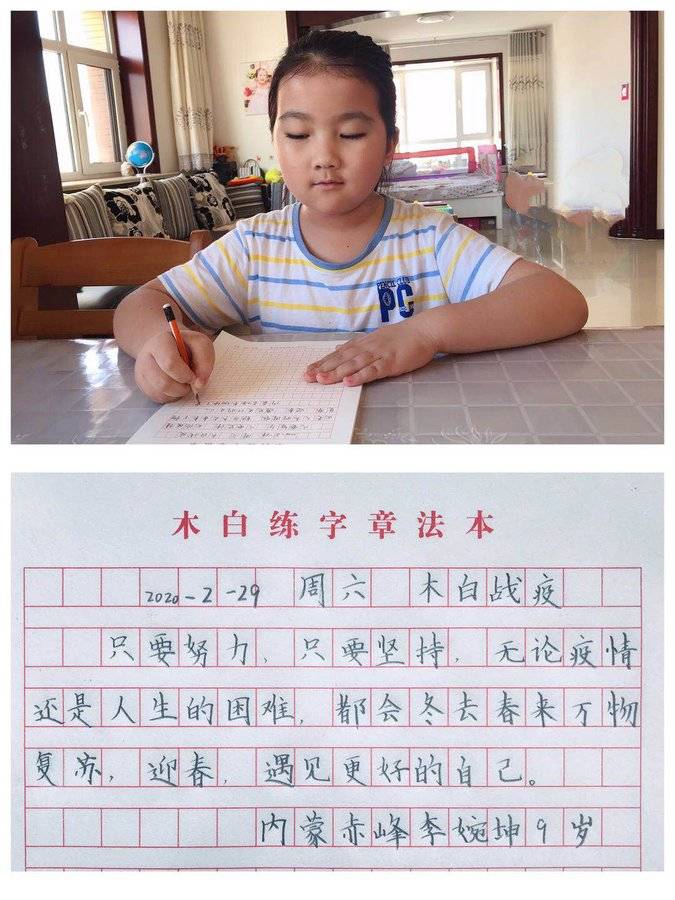 PC
木白练字章法本
2020-2-29 周六 木白战疫
只要努力，只要坚持，无论疫情
还是人生的困难，都会冬去春来万物
复苏，迎春，遇见更好的自己。
内蒙赤峰李婉坤9岁